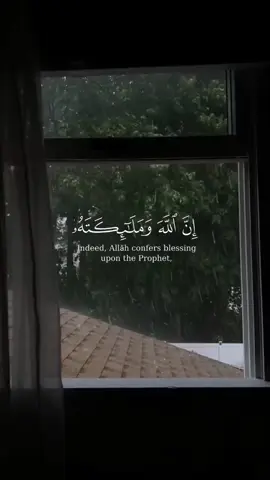 إِنَّ ٱللَّهَ وَمَلَـٰٓئِكَتَهُۥ
Indeed, Allāh confers blessing
upon the Prophet,